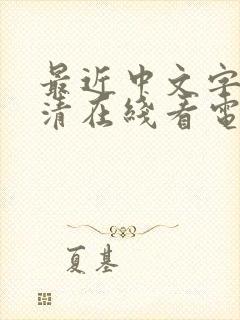 最近中文字
清在线看電
夏基